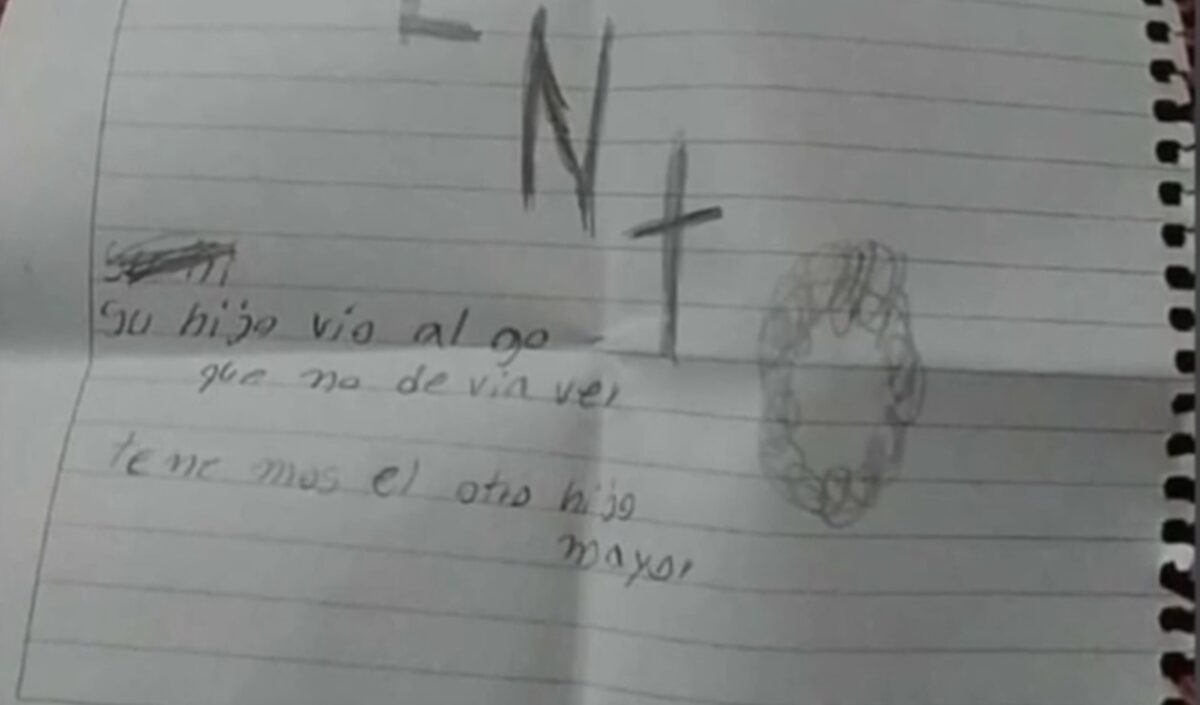 N
t
O
Su hijo vio al go
que no de via ver
tene mos el otro hijo
mayor